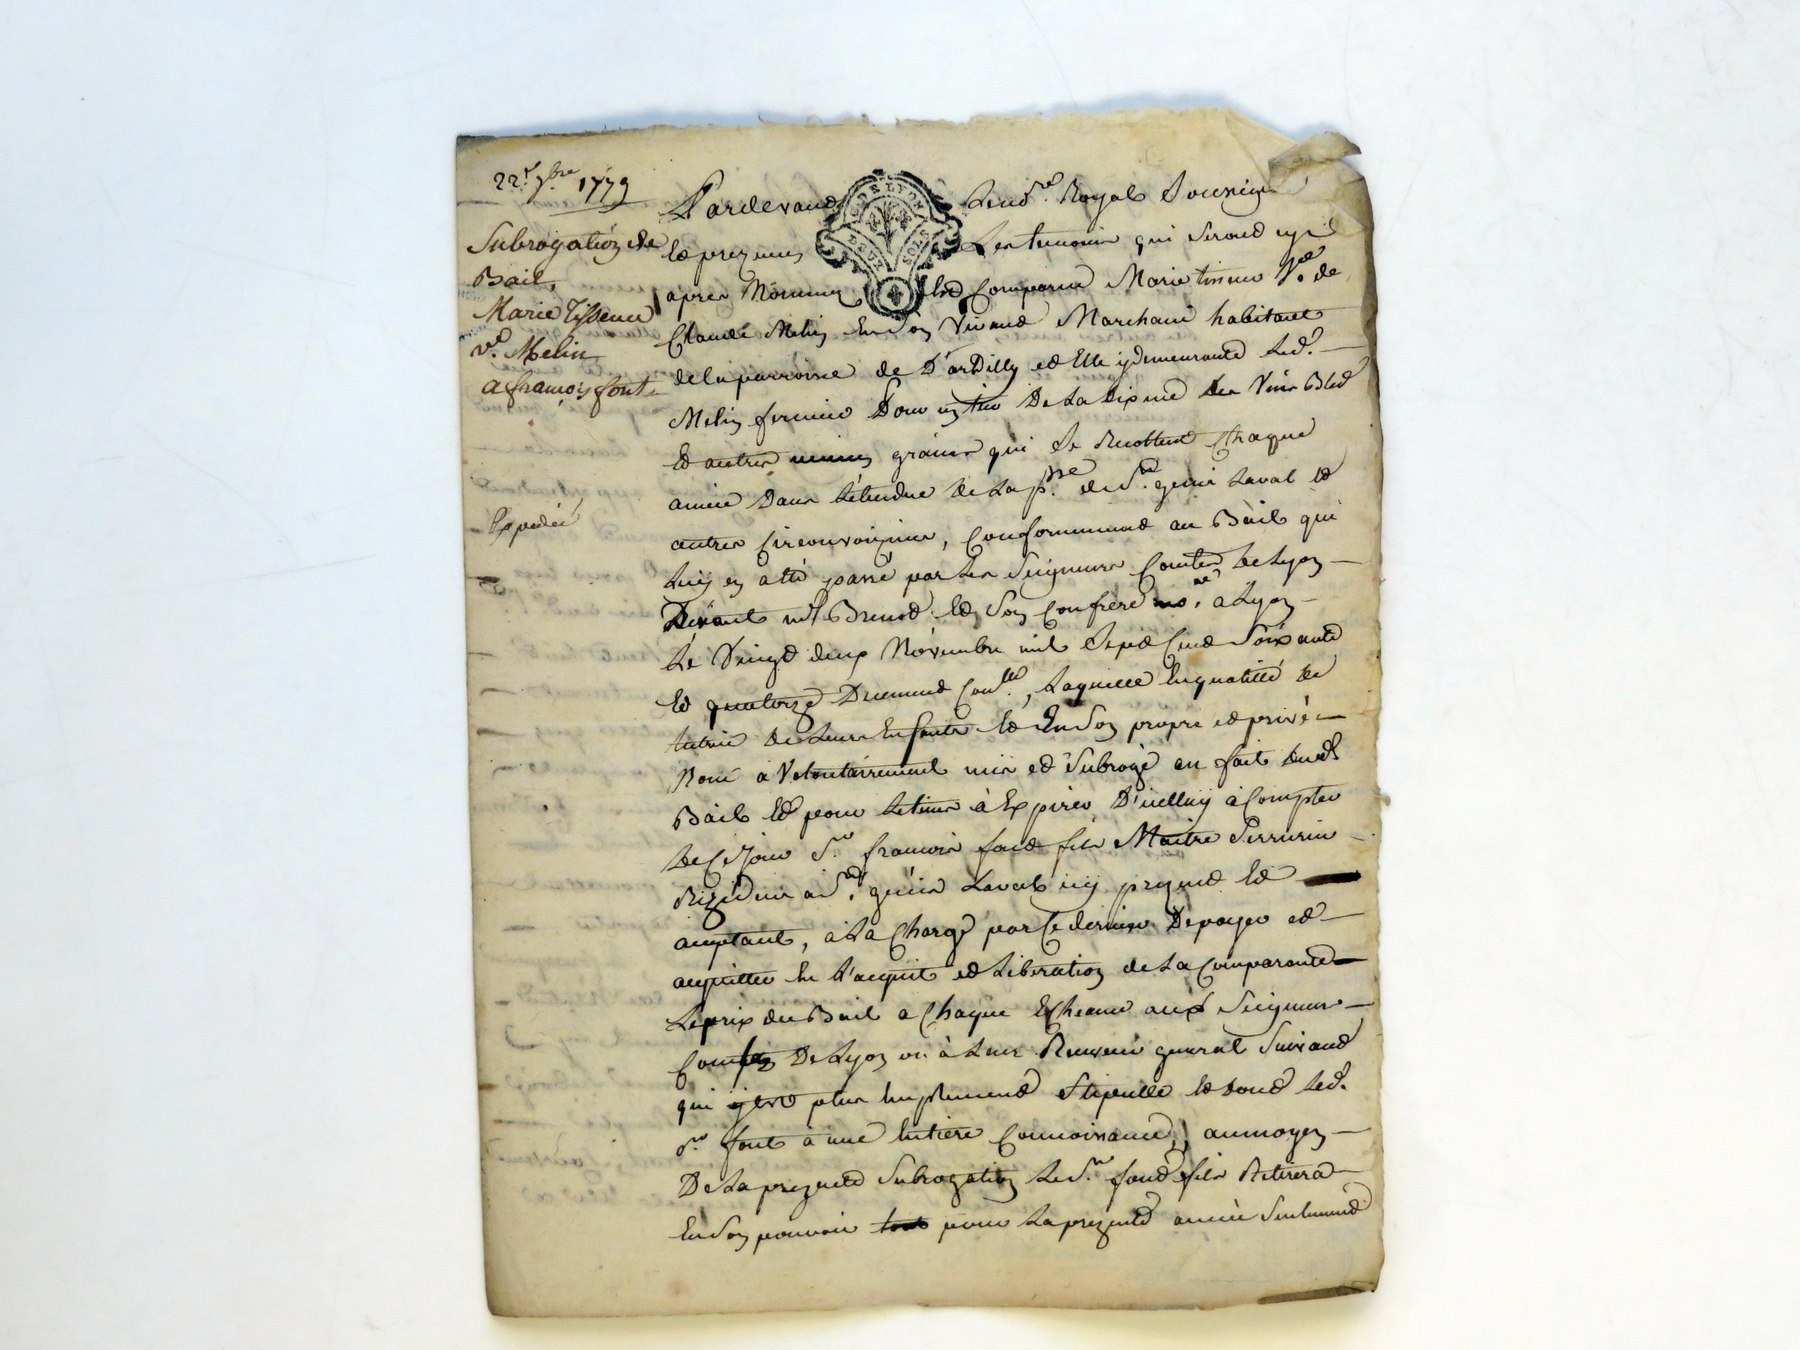 22.e 9.bre 1779
Subrogation de
Bail.
Marie Tisseur
v.e Melin
a françois font
Expedié
GEN DE LYON
SOLS
Pardevant Le no.re Royal Soussigné
et presens Les temoins qui seront cy
apres Nommes est Comparue Marie tisseur V.e de
Claude Melin En son Vivant Marchand habitant
de la parroisse de D'ardilly et Elle y demeurante Led.
Melin fermier Pour un tier De La dixme des Vins Bled
et autres menus grains qui Se Recoltent Chaque
année Dans L'étendue de La p.sse de S.t genis Laval et
autres Circonvoisines, Conformement au Bail qui
Luy en a été passé par Les Seigneurs Comtes de Lyon
Devant M.e et Son Confrere no.re à Lyon
Le Vingt deux Novembre mil Sept Cent Soixante
et quatorze Duement Con.llé, Laquelle En qualité de
tutrice de Leurs Enfants et En Son propre et privé
Nom à Volontairement mis et Subrogé au fait dud.
Bail et pour Le tems à Expirer D'icelluy à Compter
de Ce Jour S.r francois font fils Maitre Serrurier
Rézident à S.t genis Laval icy present et
acceptant, a La Charge par Ce dernier De payer et
acquitter En L'acquit et Liberation de La Comparante
Le prix du Bail a Chaque Echeance aux Seigneurs
Comtes De Lyon ou à Leur Receveur general Suivant
qui y est plus Emplement Stipullé et dont Led.
S.r font à une Entiere Connoissance, au moyen
De La presente Subrogation Led. S.r font fils Retirera
En Son pouvoir pour La presente année Seulement